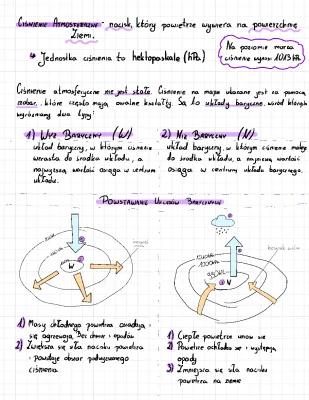 CIŚNIENIE ATMOSFERYCZNE - nacisk, który powietrze wywiera na powierzchnię
Ziemi.
Jednostka ciśnienia to hektopaskale (hPa)
Na poziomie morza
ciśnienie wynosi 1013 hPa
Ciśnienie atmosferyczne nie jest stałe. Ciśnienie na mapie ukazane jest za pomocą
izobar, które często mają owalne kształty. Są to układy baryczne, wśród których
wyróżniamy dwa typy:
1) WYŻ BARYCZNY (W)
układ baryczny, w którym ciśnienie
wzrasta do środka układu, a
największa wartość osiąga w centrum
układu.
2) NIŻ BARYCZNY (N)
układ baryczny, w którym ciśnienie maleje
do środka układu, a najniższą wartość
osiąga w centrum układu barycznego.
POWSTAWANIE UKŁADÓW BARYCZNYCH
W
kierunek
wiatru
1000
N
kierunek wiatru
1) Masy chłodnego powietrza opadają i
się ogrzewają. Bez chmur i opadów
2) Zwiększa się siła nacisku powietrza
i powstaje obszar podwyższonego
ciśnienia
1) Ciepłe powietrze unosi się
2) Powietrze ochładza się i występują
opady
3) Zmniejsza się siła nacisku
powietrza na ziemię